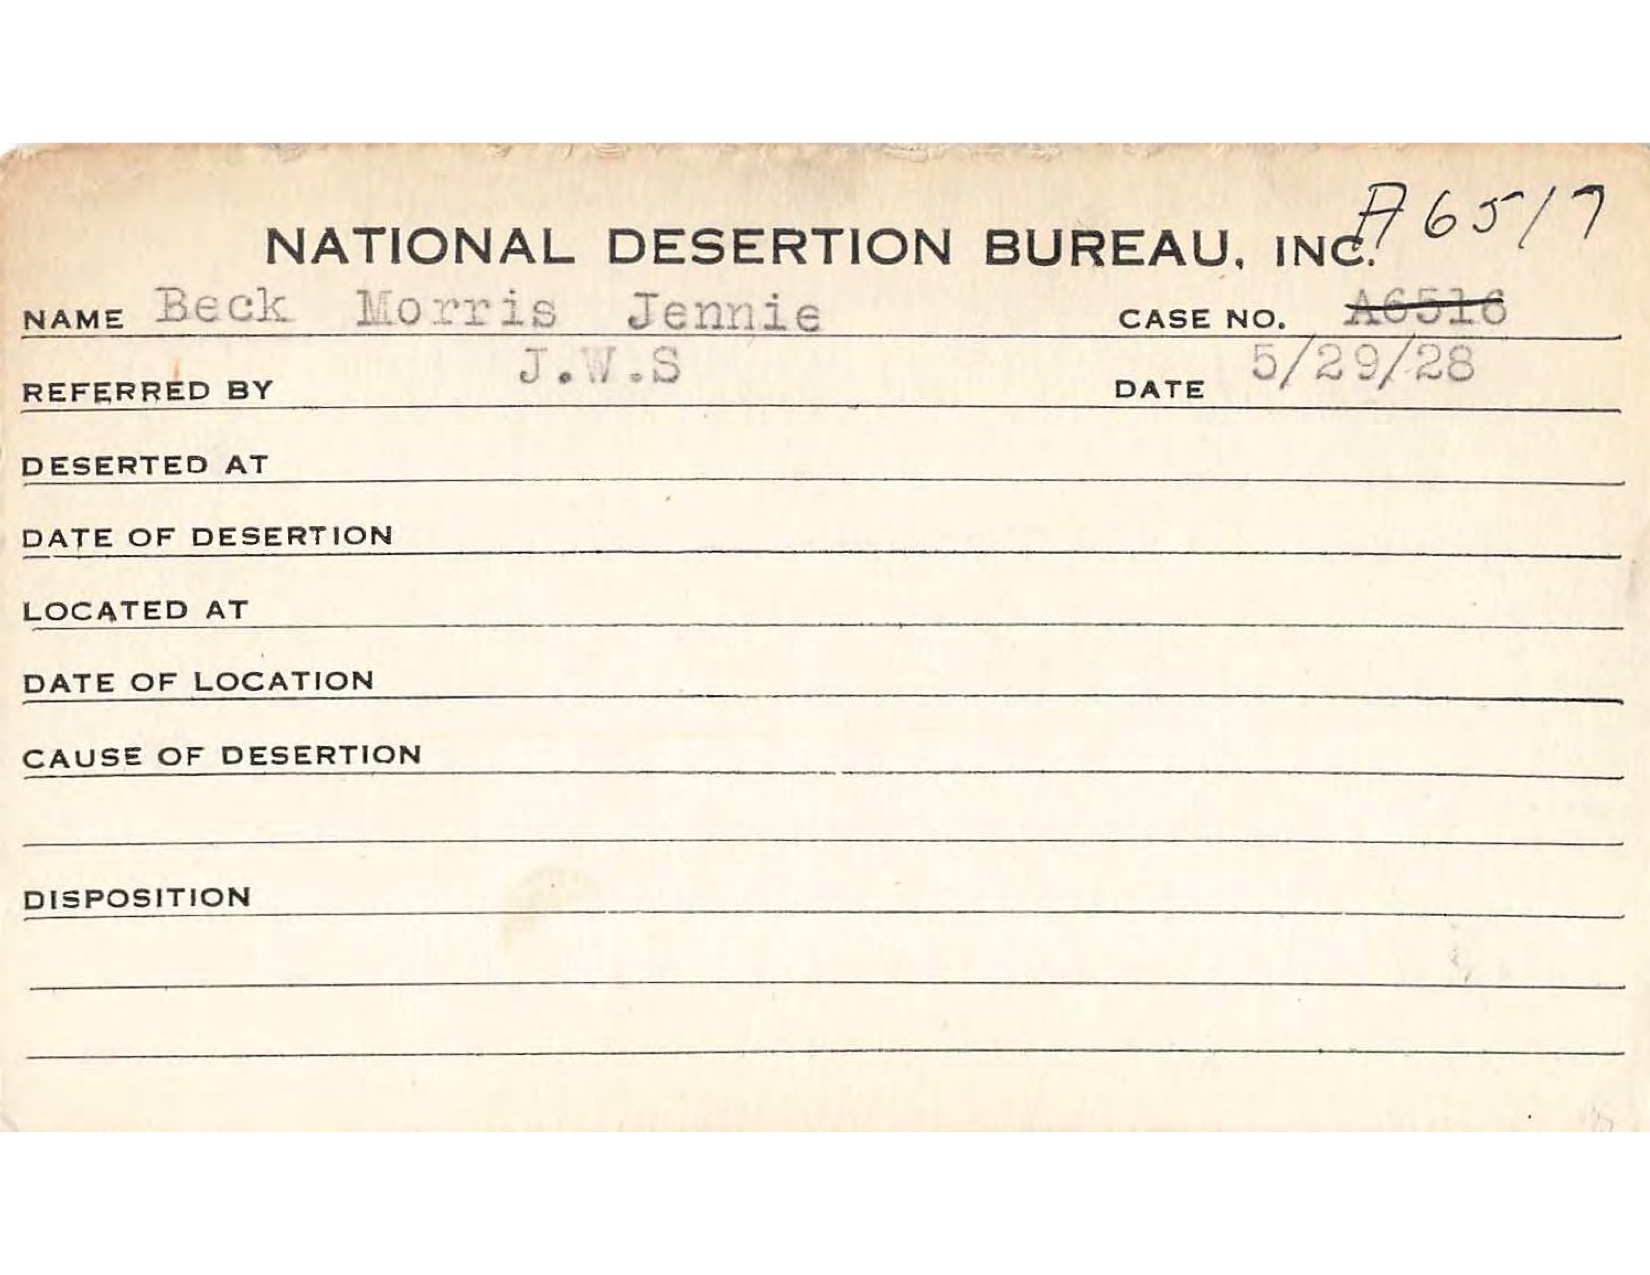 A6517
NATIONAL DESERTION BUREAU, INC.
NAME Beck Morris Jennie CASE NO. A6516
REFERRED BY J.W.S DATE 5/29/28
DESERTED AT
DATE OF DESERTION
LOCATED AT
DATE OF LOCATION
CAUSE OF DESERTION
DISPOSITION